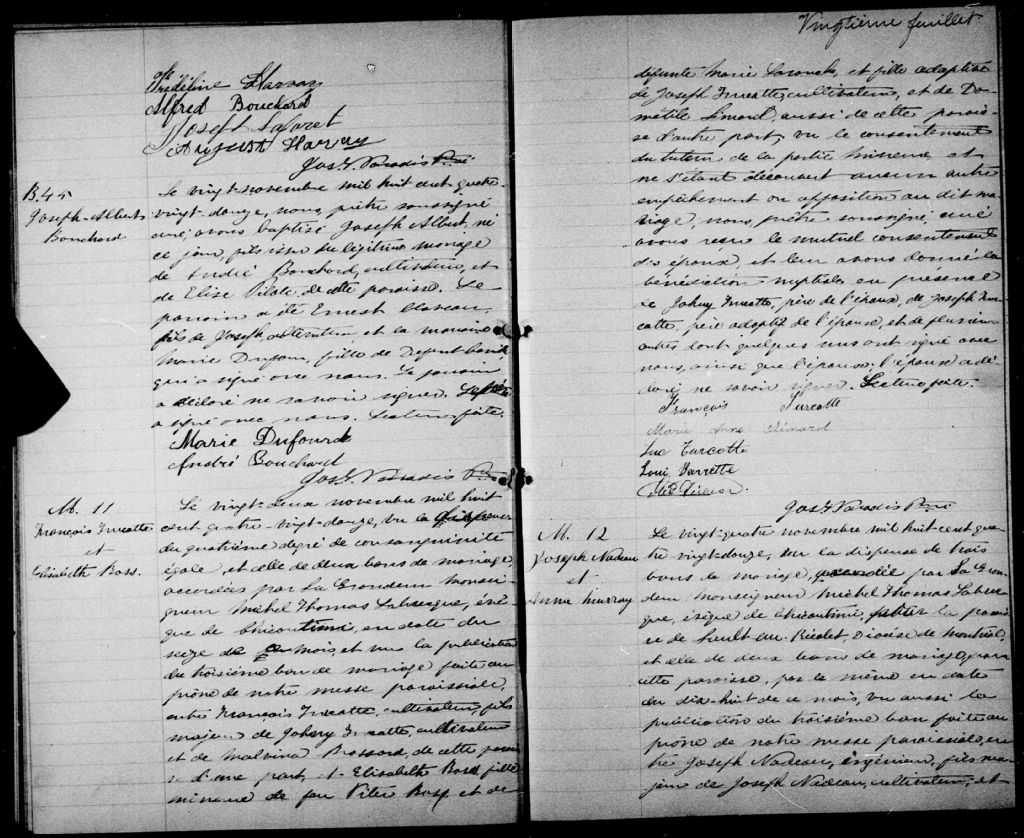 Vingtième feuillet
Frédéline Harvay
Alfred Bouchard
Joseph Laforet
August Harvay
Jos. Paradis Ptre
B. 45
Joseph-Albert
Bouchard
Le vingt-novembre mil huit cent quatre-
vingt-douze, nous, prêtre soussigné
curé, avons baptisé Joseph Albert, né
ce jour, fils issu du légitime mariage
de André Bouchard, cultivateur, et
de Elise Pilote, de cette paroisse. Le
parrain a été Ernest
fils de Joseph, cultivateur, et la marraine
Marie Dufour, fille de
qui a signé avec nous. Le parrain
a déclaré ne savoir signer. Le père
a signé avec nous. Lecture faite.
Marie Dufourd
André Bouchard
Jos. Paradis Ptre
M. 11
François Turcotte
et
Elisabeth Boss.
Le vingt-deux novembre mil huit
cent quatre-vingt-douze, vu la dispense
du quatrième degré de consanguinité
égale, et celle de deux bans de mariage,
accordées par Sa Grandeur Monsei-
gneur Michel Thomas Labrecque, évê-
que de Chicoutimi, en date du
seize de ce mois, et vu la publication
du troisième ban de mariage faite au
prône de notre messe paroissiale,
entre François Turcotte, cultivateur, fils
majeur de Johnny Turcotte, cultivateur
et de Malvina Brassard de cette parois-
se d'une part, & Elisabeth Boss fille
mineure de feu Piter Boss et de
défunte Marie et fille adoptive
de Joseph Turcotte, cultivateur, et de Do-
métile Simard, aussi de cette parois-
se d'autre part, vu le consentement
du tuteur de la partie mineure et
ne s'étant découvert aucun autre
empêchement ou opposition au dit ma-
riage, nous, prêtre soussigné curé
avons reçu le mutuel consentement
des époux, et leur avons donné la
bénédiction nuptiale en présence
de Johnny Turcotte, père de l'époux, de Joseph Tur-
cotte, père adoptif de l'épouse, et de plusieurs
autres dont quelques uns ont signé avec
nous, ainsi que l'époux; l'épouse a dé-
claré ne savoir signer. Lecture faite.
François Turcotte
Marie Anne Simard
Luc Turcotte
Loui Varrette
Jos. Paradis Ptre
M. 12
Joseph Nadeau
et
Anna Murray
Le vingt-quatre novembre mil huit-cent qua-
tre vingt-douze, vu la dispense de trois
bans de mariage, accordée par Sa Gran-
deur Monseigneur Michel Thomas Labrec-
que, évêque de Chicoutimi, la parois-
se de Sault au Récolet, Diocèse de Montréal,
et celle de deux bans de mariage, pour
cette paroisse, par le même en date
du dix-huit de ce mois, vu aussi la
publication du troisième ban faite au
prône de notre messe paroissiale, en-
tre Joseph Nadeau, ingénieur, fils ma-
jeur de Joseph Nadeau, cultivateur, et